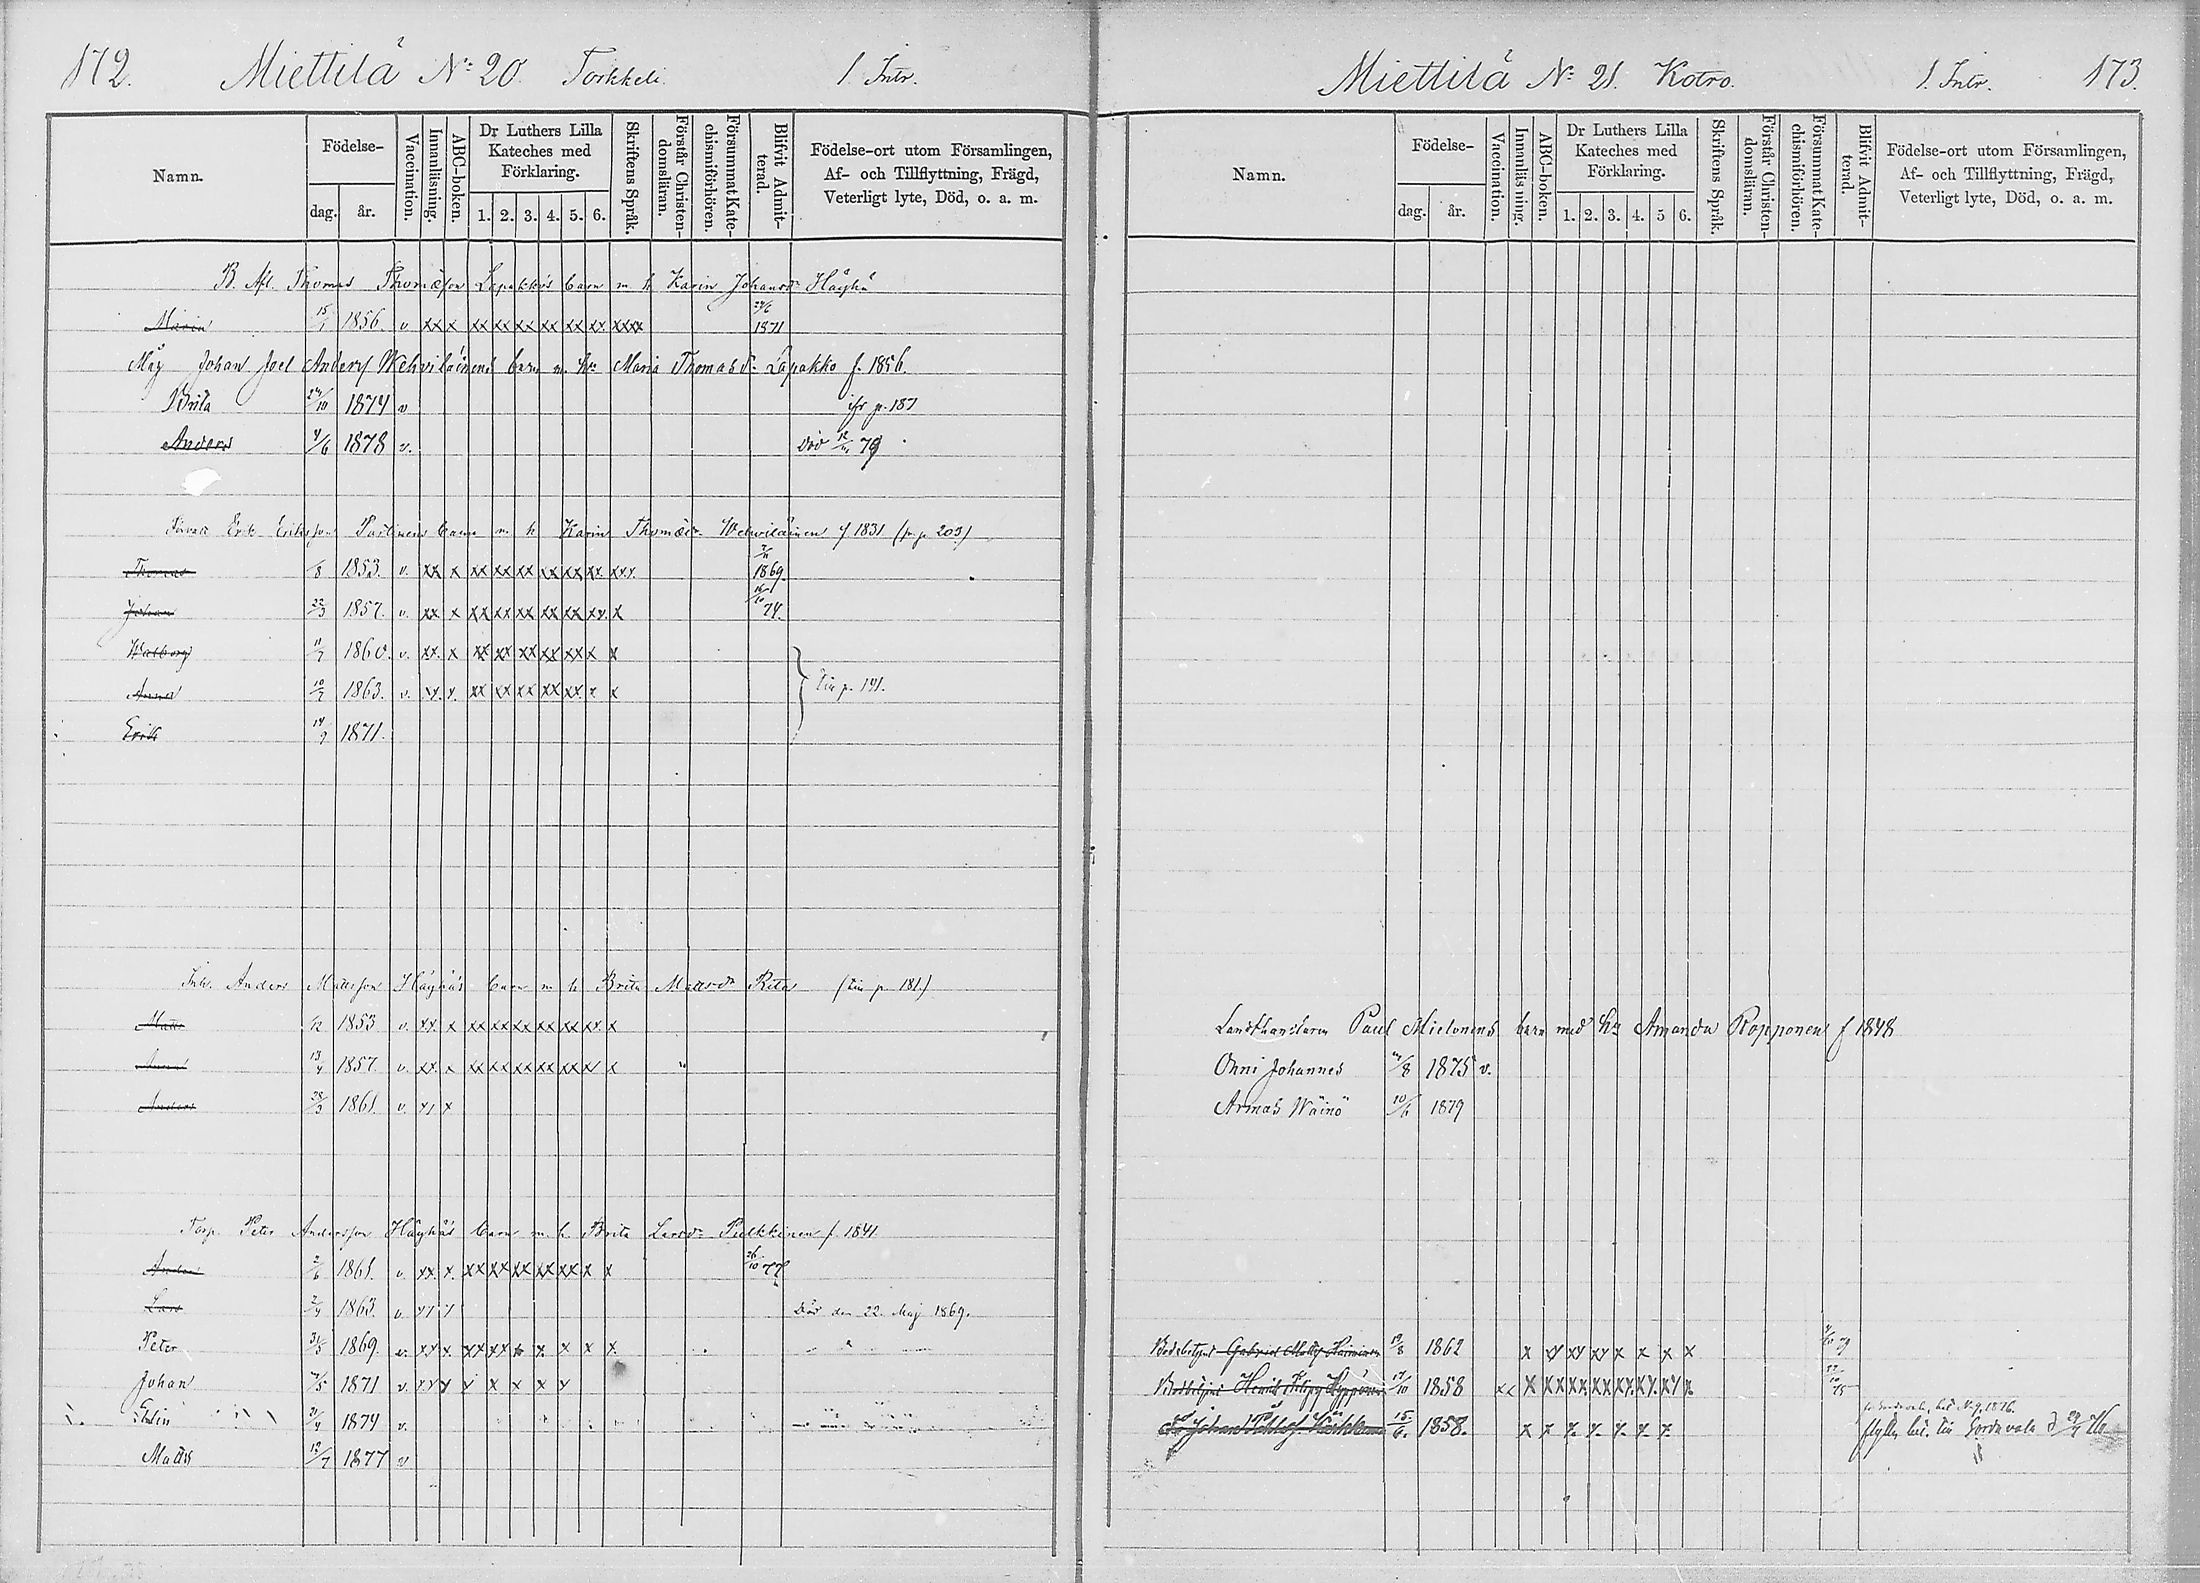 172. Miettilä No 20. Torkkeli. 1. Intr.
Namn. Födelse- dag. år. Vaccination. Innanläsning. ABC-boken. Dr Luthers Lilla Kateches med Förklaring. 1. 2. 3. 4. 5. 6. Skriftens Språk. Förstår Christendomsläran. Försummat Katechismiförhören. Blifvit Admitterad. Födelse-ort utom Församlingen, Af- och Tillflyttning, Frägd, Veterligt lyte, Död, o. a. m.
Thomas Thomæson Lapakkos barn m. h. Karin Johansdr Häyhä
Maria 15/1 1856. v xx x xx xx xx xx xx xx xxx 1871
Måg Johan Joel Anders Wehviläinens barn m. hu Maria Thomasdr Lapakko f. 1856.
Brita 1874 v p. 187
Anders 4/6 1878 v. Död 79
Erik Eriksson Partinens barn m h Karin Thomædr Wehviläinen f 1831. (p. 203)
Thomas 1853. v. xx x xx xx xx xx xx xx. xxx. 1869.
Johan 22/3 1857. v. xx x xx xx xx xx xx xx. x 74.
Walborg 1860. v. xx. x xx xx xx xx xx x x
Anna 10/7 1863. v. xx. x. xx xx xx xx xx. x x Tin p. 191.
Erik 14/9 1871.
Inh. Anders Mattsson Häyhäs barn m h Brita Mattsdr (Tin p 181.)
Matts 1853 v. xx x xx xx xx xx xx xx. x
Anna 13/4 1857. v. xx. x xx xx xx xx xx x
Anders 28/3 1861. v. x
Torp. Peter Andersson Häyhäs barn m. h. Brita Larsdr Pulkkinen f. 1841
Anders 2/6 1861. v. xx. x. xx xx xx xx xx x x 26/10 77
Lars 2/4 1863. v. Död den 22. Maj 1869.
Peter 31/5 1869. v. xx x. xx xx x x. x x x
Johan 1871 v. x x x x
Elin 1874 v.
Matts 12/7 1877 v
Miettilä No 21. Kotro. 1. Intr. 173.
Namn. Födelse- dag. år. Vaccination. Innanläsning. ABC-boken. Dr Luthers Lilla Kateches med Förklaring. 1. 2. 3. 4. 5 6. Skriftens Språk. Förstår Christendomsläran. Försummat Katechismiförhören. Blifvit Admitterad. Födelse-ort utom Församlingen, Af- och Tillflyttning, Frägd, Veterligt lyte, Död, o. a. m.
Landthandlaren Paul Mielonens barn med hu Amanda Ropponen f 1848
Onni Johannes 1875 v.
Armas Wäinö 10/6 1879
Bodbetjent Gabriel 1862 x xx xx x x x x
Bodbetjent Henrik Filip Hyppönen 17/10 1858 xx x xx xx xx xx. xx. xx x
Johan 15/6. 1858. x x x x x x x
flytt. bet. till Sordavala